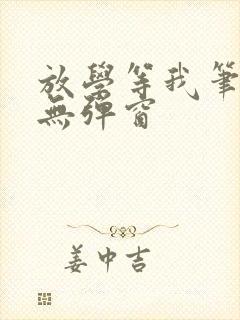 放學等我筆
無彈窗
姜中吉